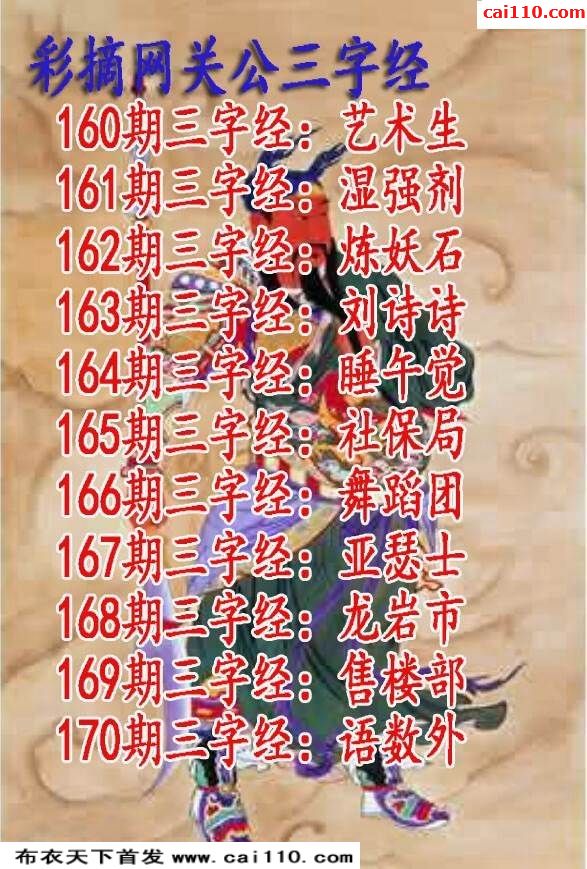 cai110.com
彩摘网关公三字经
160期三字经：艺术生
161期三字经：湿强剂
162期三字经：炼妖石
163期三字经：刘诗诗
164期三字经：睡午觉
165期三字经：社保局
166期三字经：舞蹈团
167期三字经：亚瑟士
168期三字经：龙岩市
169期三字经：售楼部
170期三字经：语数外
布衣天下首发 www.cai110.com